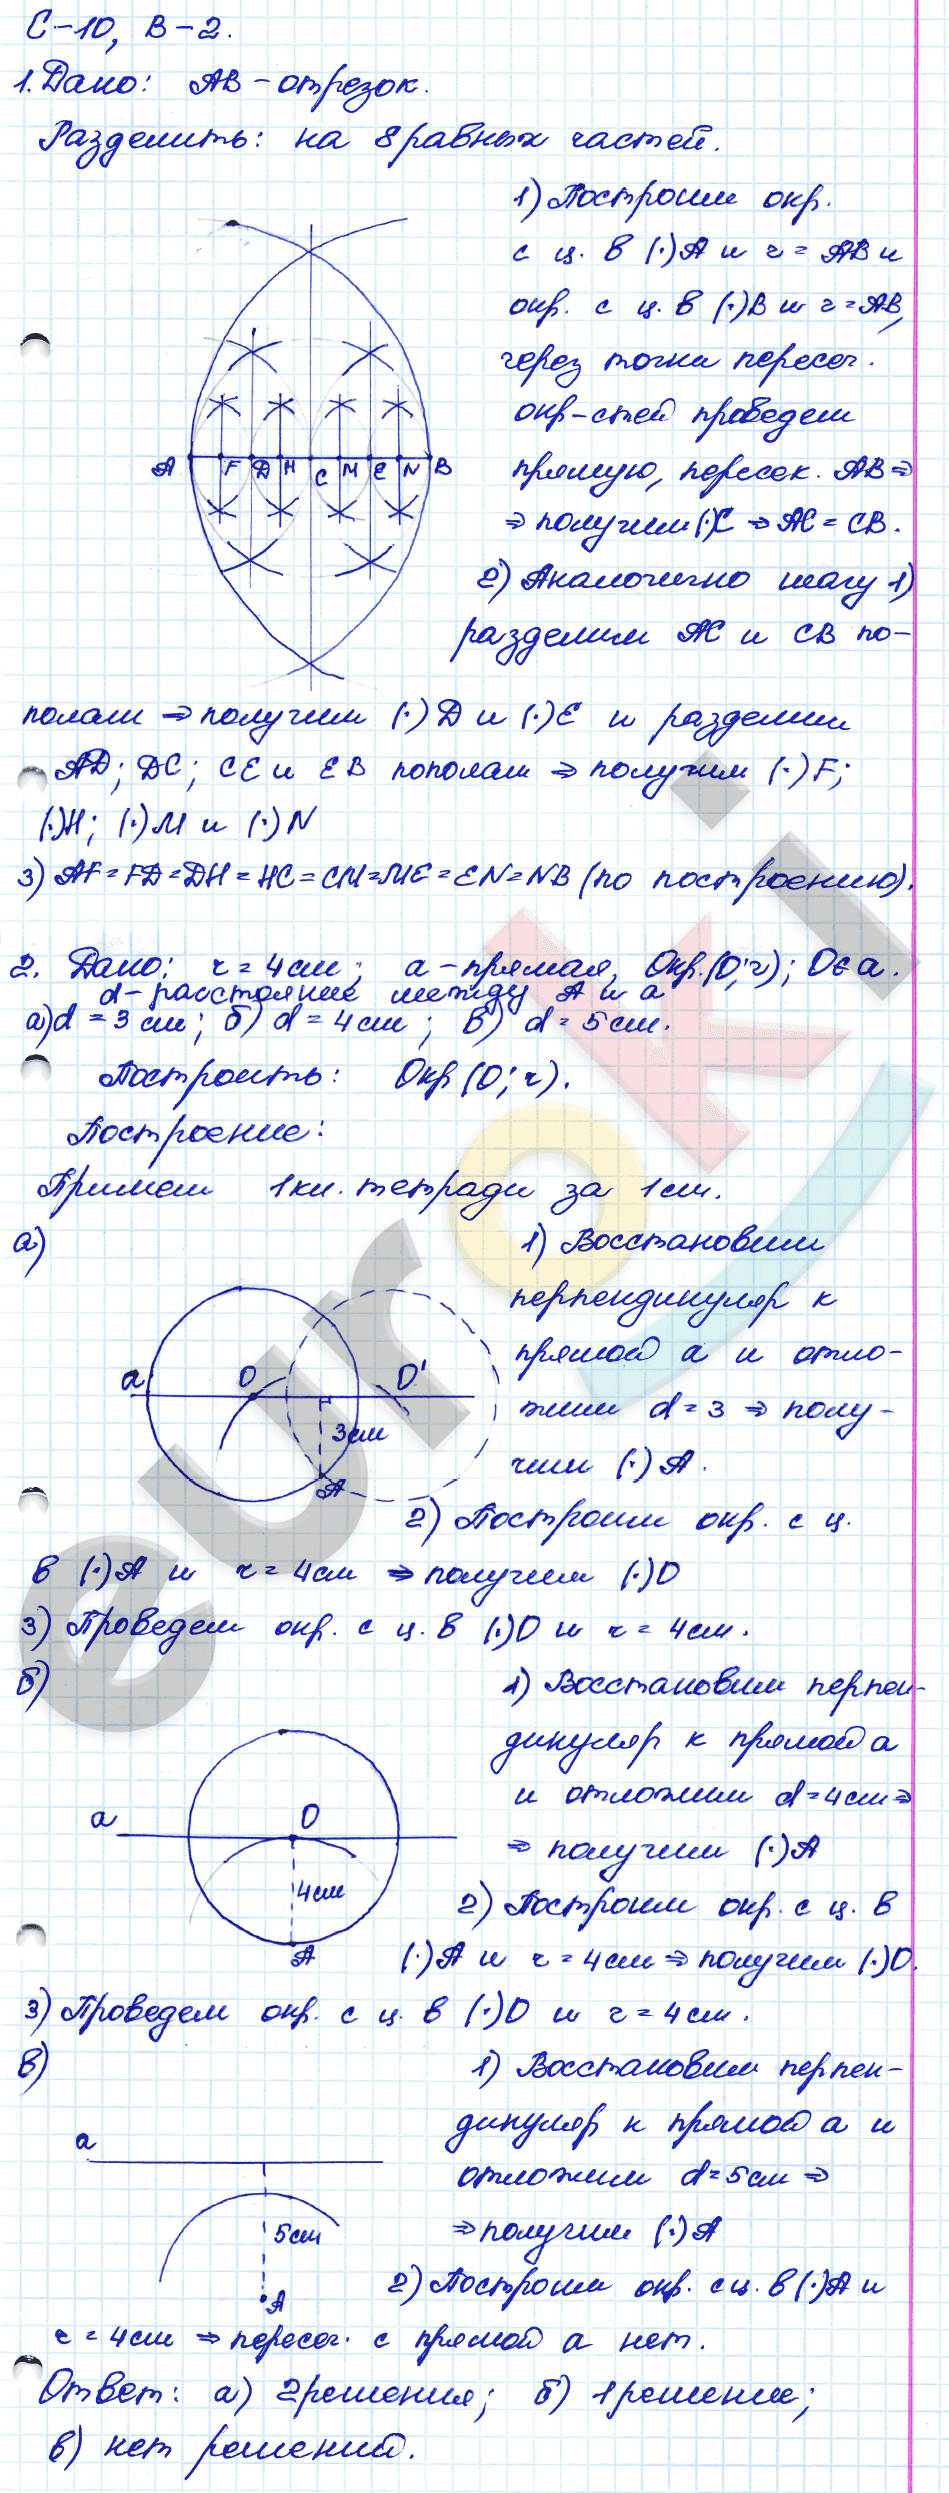 С-10, В-2.
1. Дано: AB - отрезок.
Разделить: на 8 равных частей.
1) Построим окр.
с ц. в (·)A и r = AB и
окр. с ц. в (·)B и r = AB,
через точки пересеч.
окр-стей проведем
прямую, пересек. AB ⇒
⇒ получим (·)C ⇒ AC = CB.
A F D H C M E N B
2) Аналогично шагу 1)
разделим AC и CB по-
полам ⇒ получим (·)D и (·)E и разделим
AD; DC; CE и EB пополам ⇒ получим (·)F;
(·)H; (·)M и (·)N
3) AF = FD = DH = HC = CM = ME = EN = NB (по построению).
2. Дано: r = 4 см; a - прямая, Окр.(O; r); O ∈ a.
d - расстояние между A и a
а) d = 3 см; б) d = 4 см; в) d = 5 см.
Построить: Окр (O; r).
Построение:
Примем 1 кл. тетради за 1 см.
а)
1) Восстановим
перпендикуляр к
прямой a и отло-
жим d = 3 ⇒ полу-
чим (·)A.
a O O' 3 см A
2) Построим окр. с ц.
в (·)A и r = 4 см ⇒ получим (·)O
3) Проведем окр. с ц. в (·)O и r = 4 см.
б)
1) Восстановим перпен-
дикуляр к прямой a
и отложим d = 4 см ⇒
⇒ получим (·)A
a O 4 см A
2) Построим окр. с ц. в
(·)A и r = 4 см ⇒ получим (·)O.
3) Проведем окр. с ц. в (·)O и r = 4 см.
в)
1) Восстановим перпен-
дикуляр к прямой a и
отложим d = 5 см ⇒
⇒ получим (·)A
a 5 см A
2) Построим окр. с ц. в (·)A и
r = 4 см ⇒ пересеч. с прямой a нет.
Ответ: а) 2 решения; б) 1 решение;
в) нет решений.
euroki